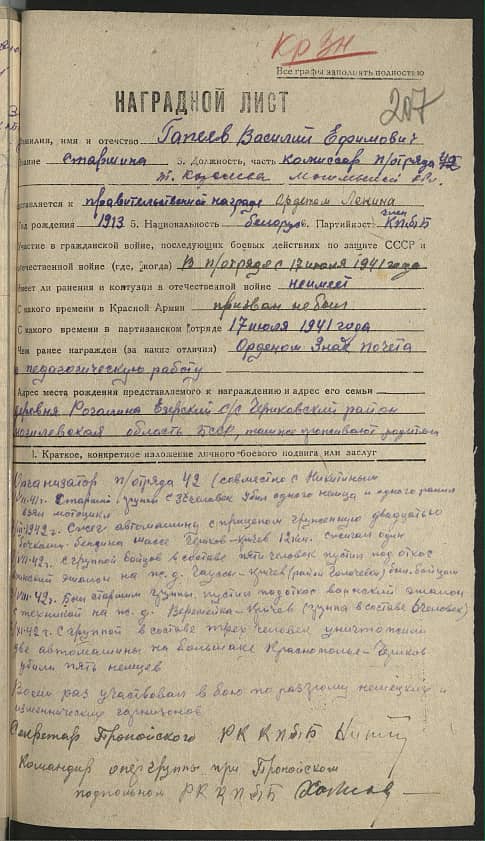 КРЗН
Все графы заполнять полностью
НАГРАДНОЙ ЛИСТ
207
Фамилия, имя и отчество Гапеев Василий Ефимович
звание старшина 3. Должность, часть комиссар п/отряда 42
Могилевской обл.
представляется к правительственной награде Орденом Ленина
Год рождения 1913 5. Национальность белорус 6. Партийность член КП/б/Б
Участие в гражданской войне, последующих боевых действиях по защите СССР и
отечественной войне (где, когда) В п/отряде с 17 июля 1941 года
Имеет ли ранения и контузии в отечественной войне неимеет
С какого времени в Красной Армии призван не был
С какого времени в партизанском отряде 17 июля 1941 года
Чем ранее награжден (за какие отличия) Орденом Знак почета
за педагогическую работу
Адрес места рождения представляемого к награждению и адрес его семьи
деревня Рогалина Езерский с/с Чериковский район
могилевская область БССР, там же проживают родители
I. Краткое, конкретное изложение личного боевого подвига или заслуг
Организатор п/отряда 42 (совместно с Никитиным
41 г. Старший группы с 3 человек убил одного немца и одного ранил
взял мотоцикл
1942 г. Сжег автомашину с прицепом груженную двадцатью
бочками бензина шоссе Чериков-Кричев 12 км. сжигал один
42 г. С группой бойцов в составе пяти человек пустил под откос
воинский эшелон на ж.д. Чаусы-Кричев был бойцом
42 г. Был старшим группы, пустил под откос воинский эшелон
с техникой на ж.д. Веремейка-Кричев (группа в составе 6 человек)
42 г. С группой в составе трех человек уничтожили
две автомашины на большаке Краснополье-Чериков
убили пять немцев
Восем раз участвовал в бою по разгрому немецких и
изменнических гарнизонов
Секретарь Пропойского РК КП/б/Б
Командир опергруппы при Пропойском
подпольном РК КП/б/Б